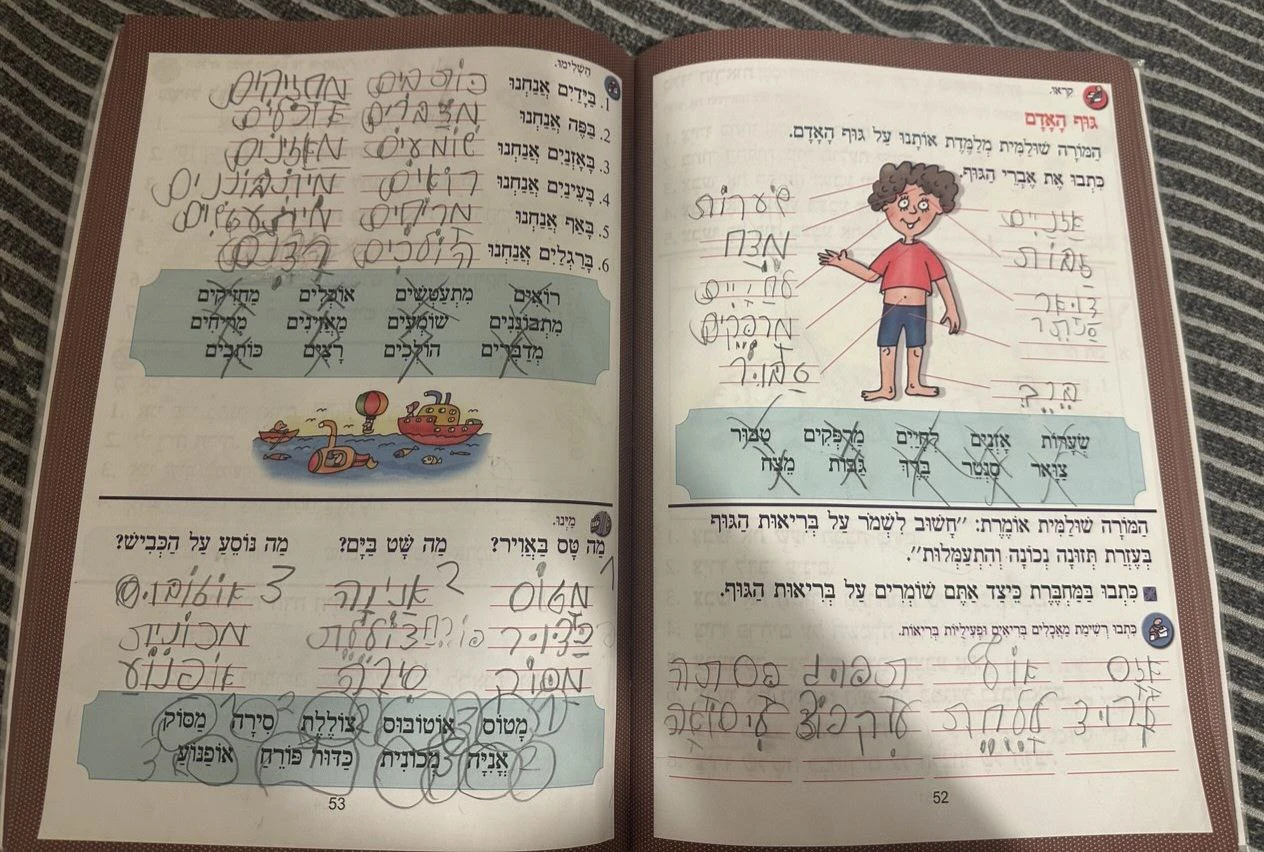 קִרְאוּ.
גוּף הָאָדָם
הַמּוֹרָה שׁוּלַמִּית מְלַמֶּדֶת אוֹתָנוּ עַל גּוּף הָאָדָם.
כִּתְבוּ אֶת אֶבְרֵי הַגּוּף.
שערות
אזניים
מצח
גבות
לחיים
צוואר
סנתר
מרפקים
טבור
ברך
שְׂעָרוֹת אָזְנַיִם לְחָיַיִם מַרְפְּקִים טַבּוּר
צַוָּאר סַנְטֵר בֶּרֶךְ גַּבּוֹת מֵצַח
הַמּוֹרָה שׁוּלַמִּית אוֹמֶרֶת: "חָשׁוּב לִשְׁמֹר עַל בְּרִיאוּת הַגּוּף
בְּעֶזְרַת תְּזוּנָה נְכוֹנָה וְהִתְעַמְּלוּת".
כִּתְבוּ בַּמַּחְבֶּרֶת כֵּיצַד אַתֶּם שׁוֹמְרִים עַל בְּרִיאוּת הַגּוּף.
כִּתְבוּ רְשִׁימַת מַאֲכָלִים בְּרִיאִים וּפְעִילֻיּוֹת בְּרִיאוֹת.
פסתה
52
הַשְׁלִימוּ.
1. בַּיָּדַיִם אֲנַחְנוּ כותבים מחזיקים
2. בַּפֶּה אֲנַחְנוּ מדברים אוכלים
3. בָּאָזְנַיִם אֲנַחְנוּ שומעים מאזינים
4. בָּעֵינַיִם אֲנַחְנוּ רואים מיתבוננים
5. בָּאַף אֲנַחְנוּ מריחים מיתעטשים
6. בָּרַגְלַיִם אֲנַחְנוּ הולכים רצים
רוֹאִים מִתְעַטְּשִׁים אוֹכְלִים מַחֲזִיקִים
מִתְבּוֹנְנִים שׁוֹמְעִים מַאֲזִינִים מְרִיחִים
מְדַבְּרִים הוֹלְכִים רָצִים כּוֹתְבִים
מַיְּנוּ.
מַה טָּס בָּאֲוִיר? מַה שָּׁט בַּיָּם? מַה נּוֹסֵעַ עַל הַכְּבִישׁ?
1 2 3
מטוס אנינה אוטובוס
פורח צוללת מכונית
מסוק סירה אופנוע
מָטוֹס אוֹטוֹבּוּס צוֹלֶלֶת סִירָה מַסּוֹק
אֳנִיָּה מְכוֹנִית כַּדּוּר פּוֹרֵחַ אוֹפַנּוֹעַ
53